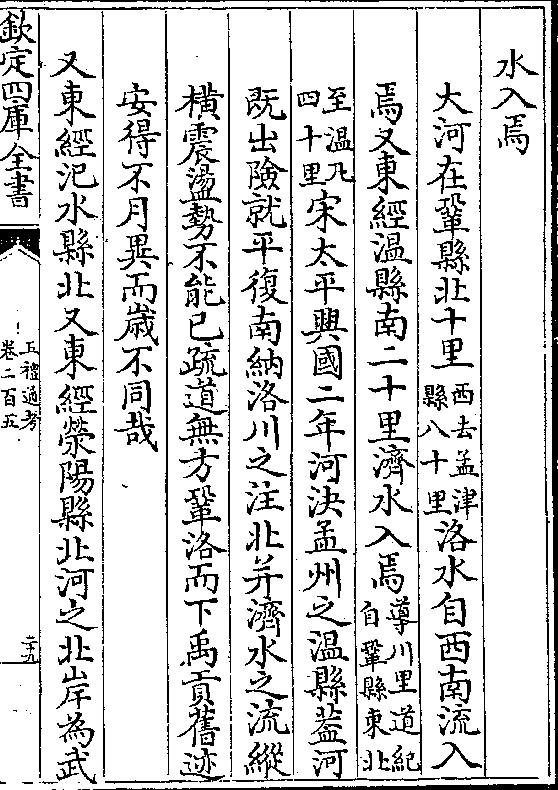 水入焉
大河在鞏縣北十里西去孟津縣八十里洛水自西南流入
焉又東經温縣南二十里濟水入焉導川里道紀自鞏縣東北
至温凡四十里宋太平興國二年河決孟州之温縣葢河
既出險就平復南納洛川之注北并濟水之流縱
橫震盪勢不能已疏道無方鞏洛而下禹貢舊迹
安得不月異而歲不同哉
又東經汜水縣北又東經滎陽縣北河之北岸為武
欽定四庫全書
五禮通考
卷二百五
二十九